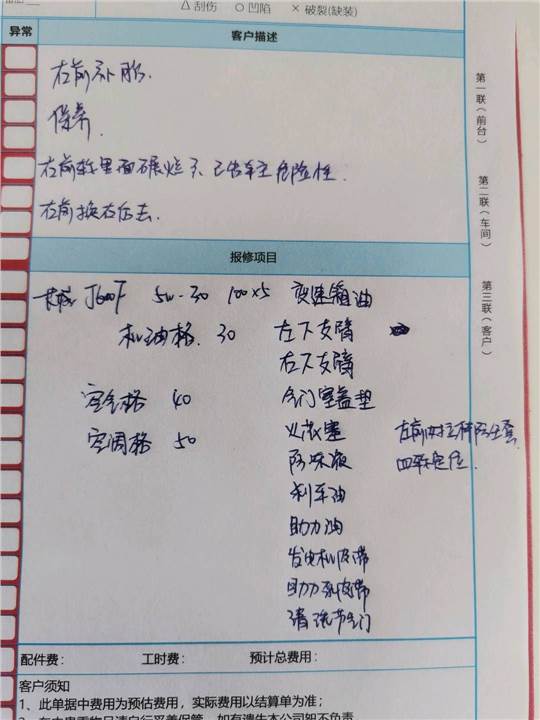 △ 刮伤 ○ 凹陷 × 破裂(缺装)
异常 客户描述
右前补胎.
保养.
右前胎里面碾烂了 已告车主危险性.
右前换右后去.
报修项目
5W-30 100×5 变速箱油
机油格. 30 左下支臂
右下支臂
空气格 40 气门室盖垫
空调格 50 火花塞 左前 防尘套
防冻液 四轮定位.
刹车油
助力油
发电机皮带
助力泵皮带
清洗节气门
配件费: 工时费: 预计总费用:
客户须知
1、此单据中费用为预估费用,实际费用以结算单为准;
第一联(前台)
第二联(车间)
第三联(客户)